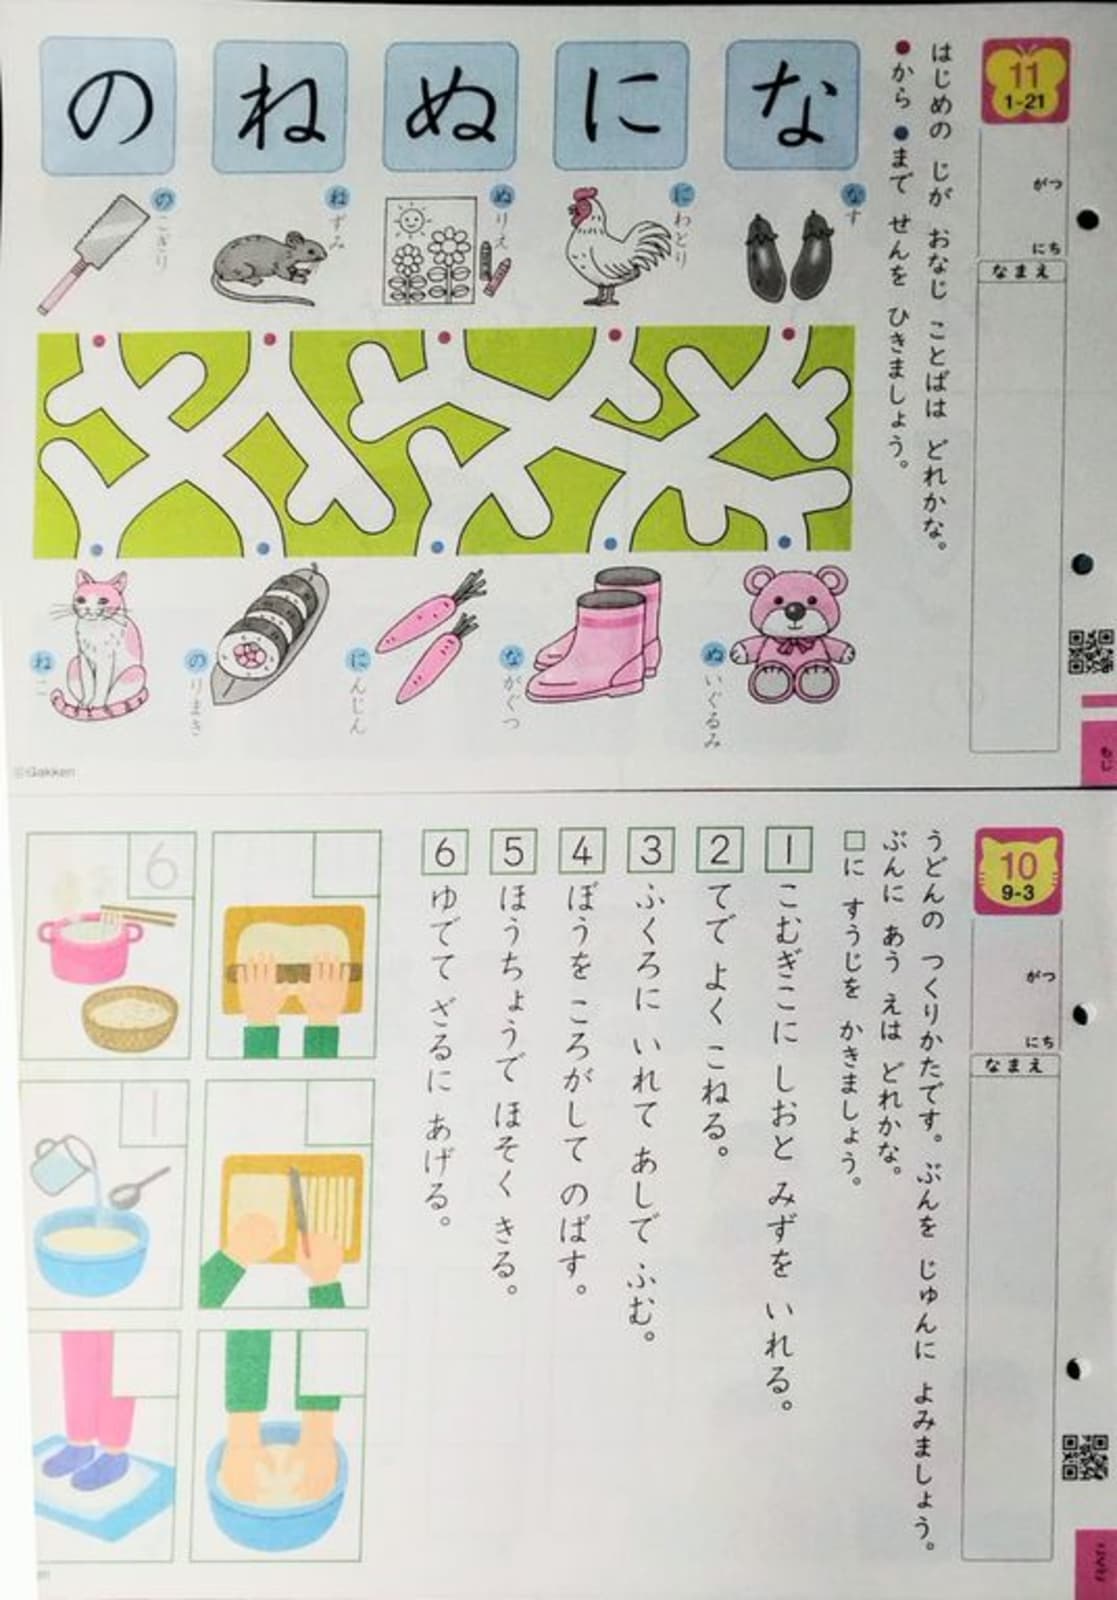 11
1-21
がつ
にち
なまえ
はじめの じが おなじ ことばは どれかな。
●から ●まで せんを ひきましょう。
な
に
ぬ
ね
の
なす
にわとり
ぬりえ
ねずみ
のこぎり
ぬいぐるみ
ながぐつ
にんじん
のりまき
ねこ
©Gakken
もじ
10
9-3
がつ
にち
なまえ
うどんの つくりかたです。ぶんを じゅんに よみましょう。
ぶんに あう えは どれかな。
□に すうじを かきましょう。
1 こむぎこに しおと みずを いれる。
2 てで よく こねる。
3 ふくろに いれて あしで ふむ。
4 ぼうを ころがして のばす。
5 ほうちょうで ほそく きる。
6 ゆでて ざるに あげる。
6
1